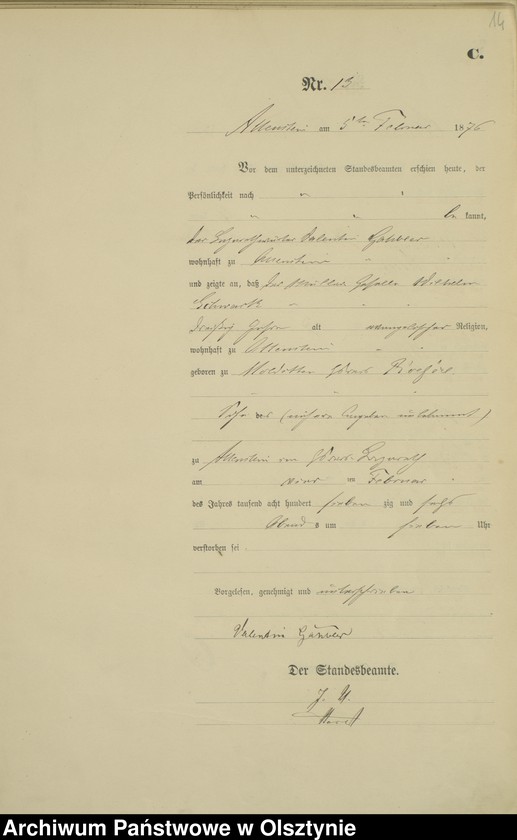 14
C.
Nr. 13
Allenstein am 5ten Februar 1876
Vor dem unterzeichneten Standesbeamten erschien heute, der
Persönlichkeit nach
be kannt,
der Lazarethwärter Valentin
wohnhaft zu Allenstein
und zeigte an, daß der Müller Geselle Wilhelm
Schwark
dreißig Jahre alt evangelischer Religion,
wohnhaft zu Allenstein
geboren zu
Sohn des (nähere Angaben unbekannt)
zu Allenstein im Lazareth
am ten Februar
des Jahres tausend acht hundert sieben zig und sechs
Abend s um sieben Uhr
verstorben sei
Vorgelesen, genehmigt und unterschrieben
Valentin
Der Standesbeamte.
Archiwum Państwowe w Olsztynie